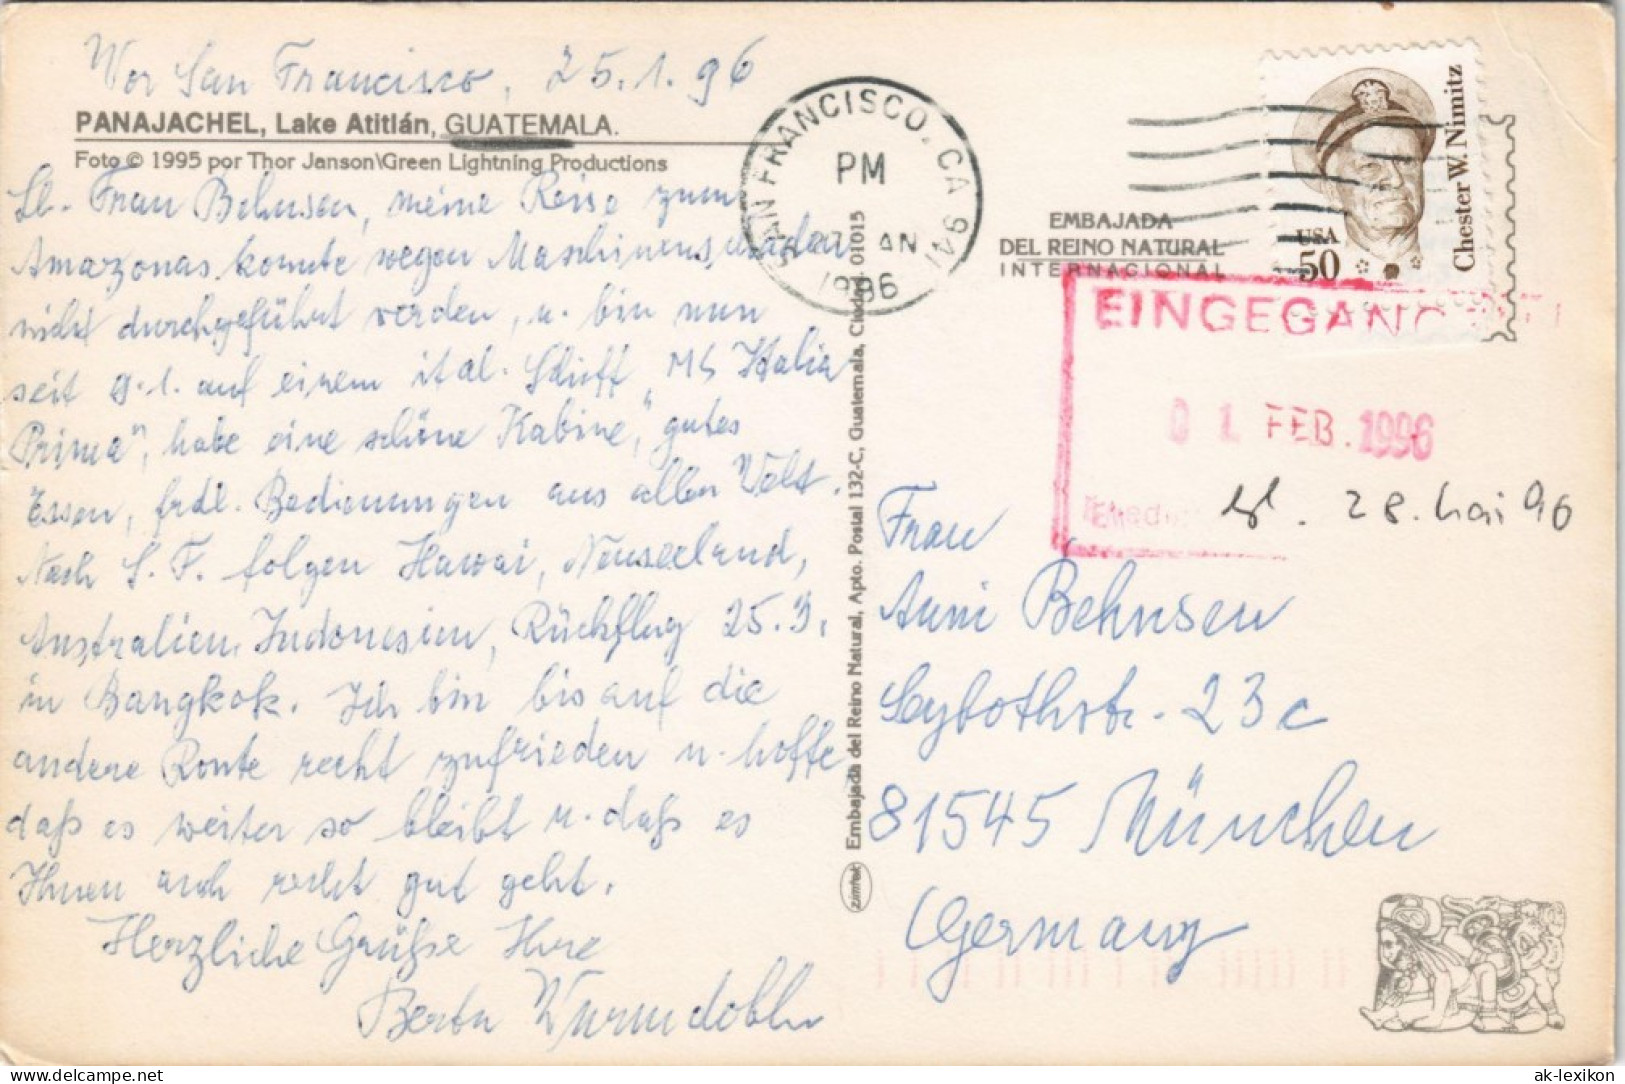 Vor San Francisco, 25.1.96
PANAJACHEL, Lake Atitlán, GUATEMALA.
Foto © 1995 por Thor Janson\Green Lightning Productions
Lb. Frau Behnsen, meine Reise zum
Amazonas konnte wegen Maschinenschaden
nicht durchgeführt werden, u. bin nun
seit 9.1. auf einem ital. Schiff "MS Italia
Prima", habe eine schöne Kabine, gutes
Essen, frdl. Bedienungen aus aller Welt.
Nach S. F. folgen Hawai, Neuseeland,
Australien, Indonesien, Rückflug 25.3.
in Bangkok. Ich bin bis auf die
andere Route recht zufrieden u. hoffe
daß es weiter so bleibt u. daß es
Ihnen auch recht gut geht.
Herzliche Grüße Ihre
Berta Wurmdobler
SAN FRANCISCO, CA 941
PM
JAN
1996
EMBAJADA
DEL REINO NATURAL
INTERNACIONAL
USA
50
Chester W. Nimitz
EINGEGANGEN
01 FEB. 1996
Erled.
28. Mai 96
Embajada del Reino Natural, Apto. Postal 132-C, Guatemala, Ciudad. 01015
zimtek
Frau
Anni Behnsen
Seybothstr. 23c
81545 München
Germany
delcampe.net
ak-lexikon